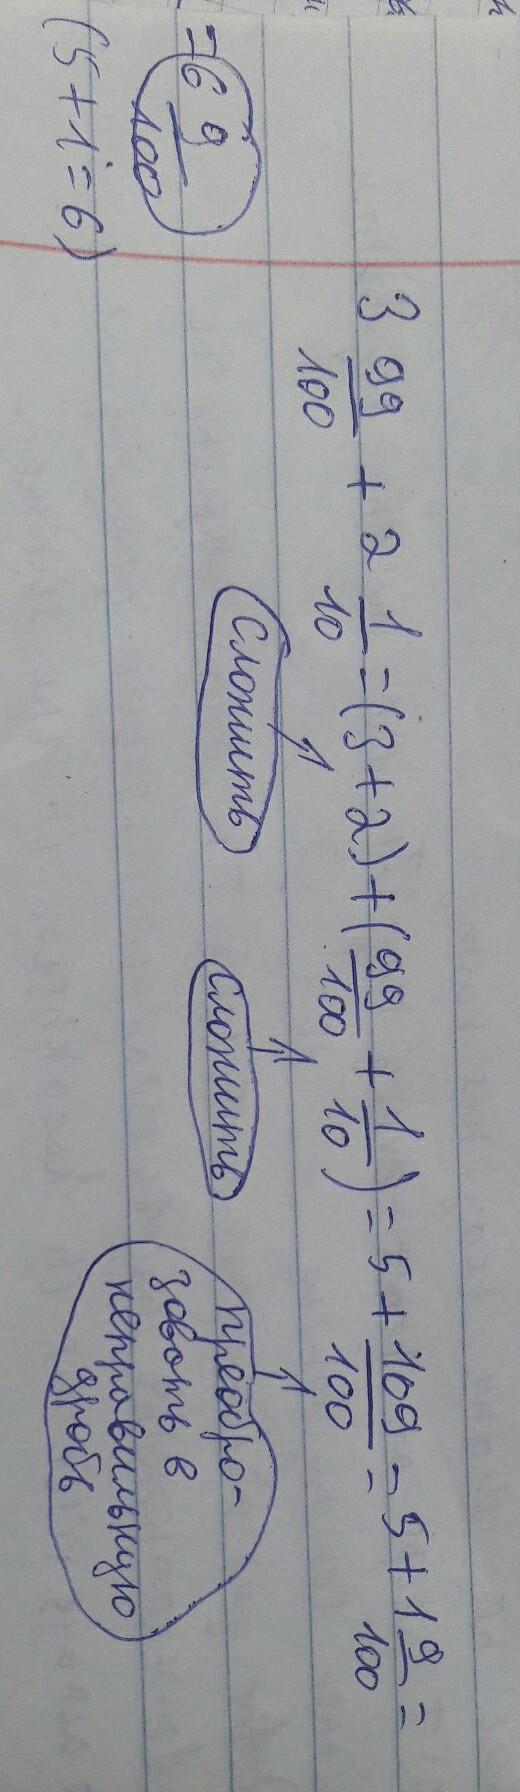 3 99/100 + 2 1/10 = (3+2) + (99/100 + 1/10) = 5 + 109/100 = 5 + 1 9/100 =
Сложить Сложить Преобра-
зовать в
неправильную
дробь
= 6 9/100
(5+1=6)